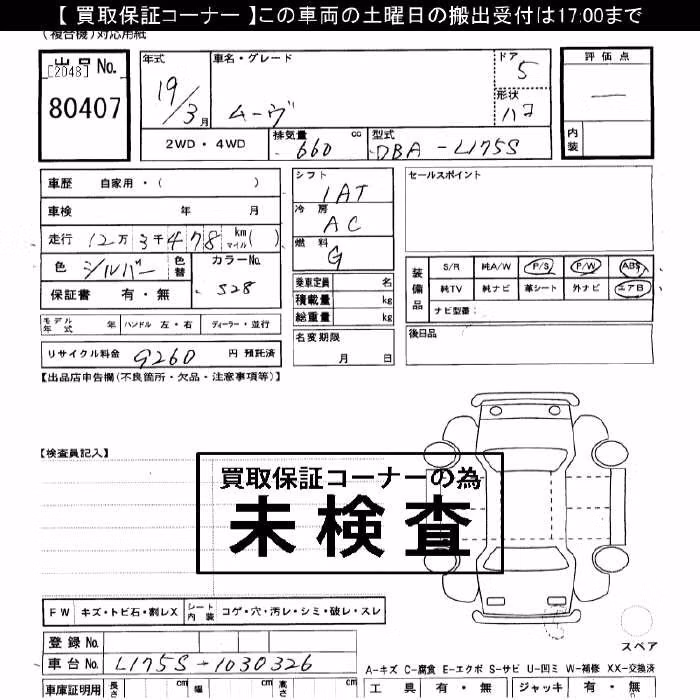 【 買取保証コーナー 】この車両の土曜日の搬出受付は17:00まで
(複合機)対応用紙
出品 No.
[2048]
80407
年式
19/3月
車名・グレード
ムーヴ
ドア
5
形状
ハコ
評価点
—
内装
2WD・4WD
排気量 660 cc
型式 DBA-L175S
車歴 自家用・( )
車検 年 月
走行 12万3千478 km マイル( )
色 シルバー 色替
カラーNo. S28
保証書 有・無
シフト
IAT
冷房
AC
燃料
G
乗車定員 名
積載量 kg
総重量 kg
セールスポイント
装備品
S/R 純A/W P/S P/W ABS
純TV 純ナビ 革シート 外ナビ エアB
ナビ型番:
モデル年式 年 ハンドル 左・右 ディーラー・並行
名変期限
月 日
後日品
リサイクル料金 9260 円 預託済
【出品店申告欄(不良箇所・欠品・注意事項等)】
【検査員記入】
買取保証コーナーの為
未検査
FW キズ・トビ石・割レX シート内装 コゲ・穴・汚レ・シミ・破レ・スレ
登録 No.
車台 No. L175S-1030326
スペア
A-キズ C-腐食 E-エクボ S-サビ U-凹ミ W-補修 XX-交換済
車庫証明用 長さ cm 幅 cm 高さ cm
工具 有・無 ジャッキ 有・無